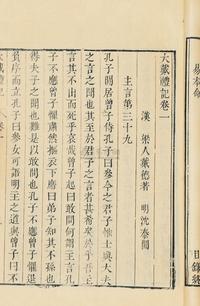 大戴禮記卷一
漢 梁人戴德著 明沈泰閱
主言第三十九
孔子閒居曾子侍孔子曰參今之君子惟士與大夫
之言之聞也其至於君子之言者甚希矣於乎吾主
言其不出而死乎哀哉曾子起曰敢問何謂主言孔
子不應曾子懼肅然摳衣下席曰弟子知其不孫也
得夫子之閒也難是以敢問也孔子不應曾子懼退
負序而立孔子曰參女可語明主之道與曾子曰不
大戴禮記 卷一